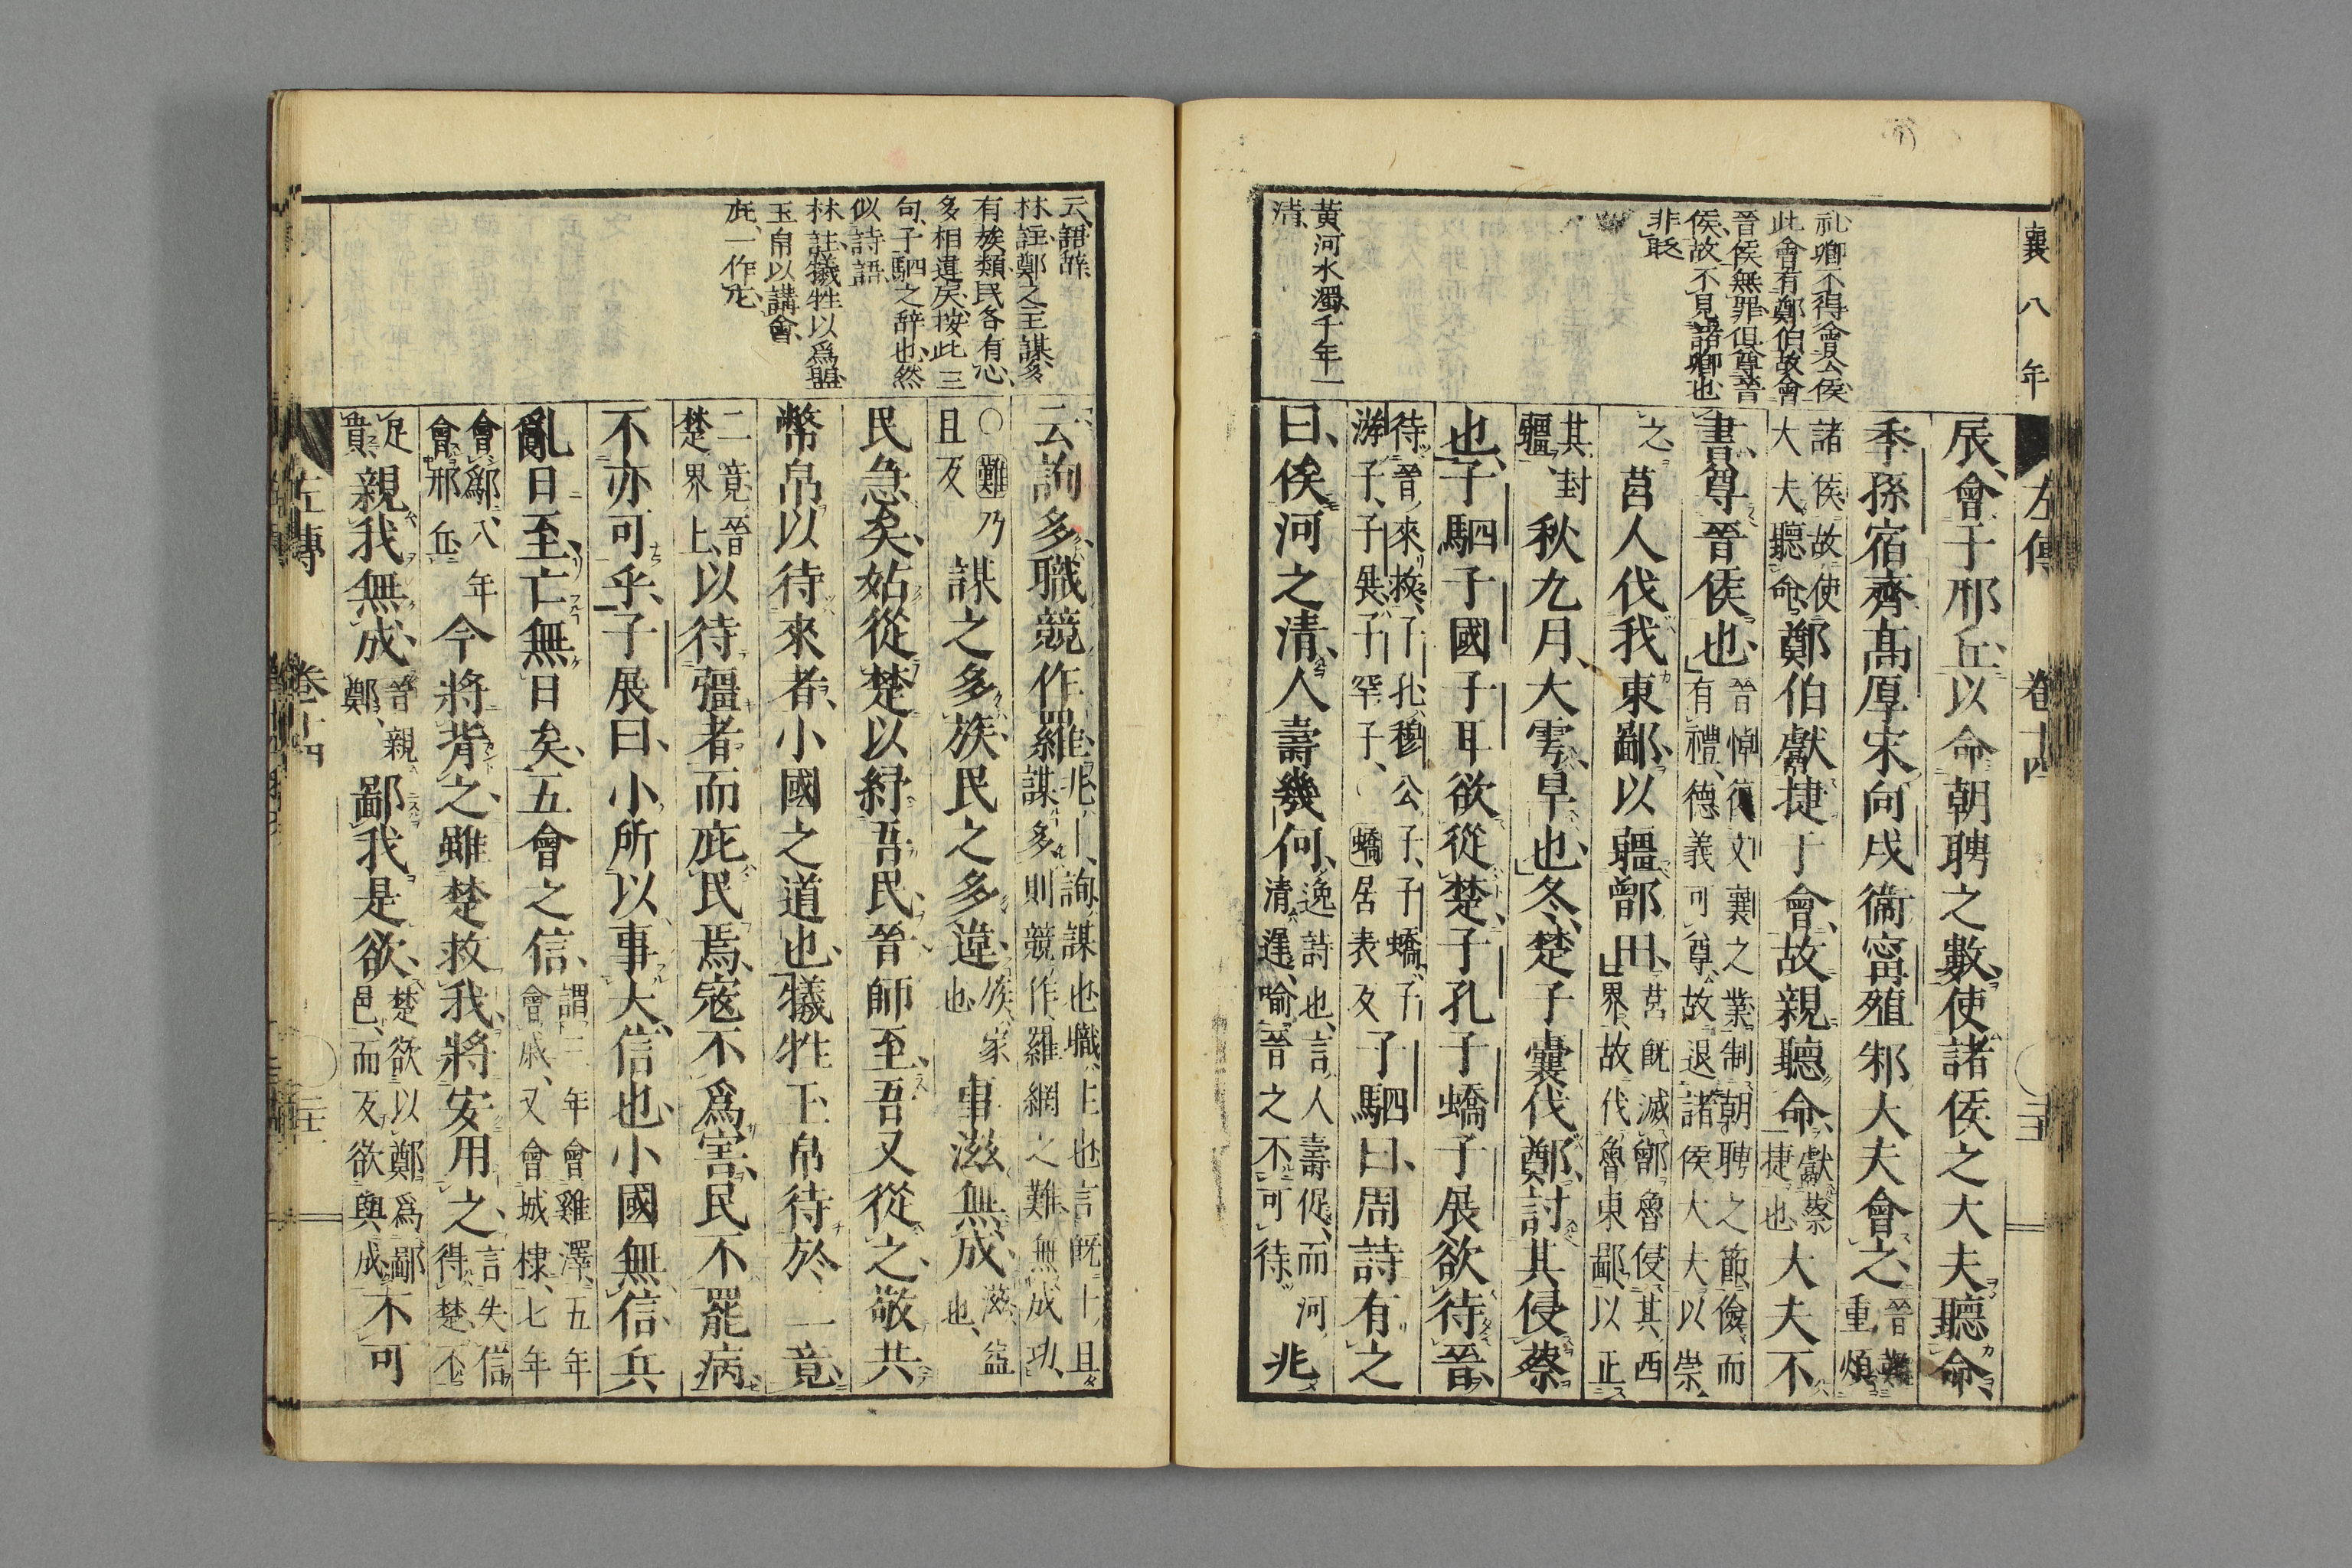 襄八年
左傳 卷十四
礼卿不得會公侯
此會有鄭伯故會
晉侯無罪但尊晉
侯故不見諸卿也
非貶
黄河水濁千年一
清
辰會于邢丘以命朝聘之數使諸侯之大夫聽命
季孫宿齊高厚宋向戌衞甯殖邾大夫會之晉難重煩
諸侯故使大夫聽命鄭伯獻捷于會故親聽命獻蔡捷也大夫不
書尊晉侯也晉悼復文襄之業制朝聘之節儉而有禮德義可尊故退諸侯大夫以崇
之莒人伐我東鄙以疆鄫田莒既滅鄫魯侵其西界故伐魯東鄙以正
其封疆秋九月大雩旱也冬楚子囊伐鄭討其侵蔡
也子駟子國子耳欲從楚子孔子蟜子展欲待晉
待晉來救子孔穆公子子蟜子游子子展子罕子蟜居表反子駟曰周詩有之
曰俟河之清人壽幾何逸詩也言人壽促而河清遲喻晉之不可待兆
云語辭
林註鄭之主謀多
有族類民各有心
多相違戾按此三
句子駟之辭也然
似詩語
林註犧牲以爲盟
玉帛以講會
庇一作庀
云詢多職競作羅兆卜詢謀也職主也言既卜且謀多則競作羅網之難無成功
○難乃且反謀之多族民之多違族家也事滋無成滋益也
民急矣姑從楚以紓吾民晉師至吾又從之敬共
幣帛以待來者小國之道也犧牲玉帛待於二竟
二竟晉楚界上以待彊者而庇民焉寇不爲害民不罷病
不亦可乎子展曰小所以事大信也小國無信兵
亂日至亡無日矣五會之信謂三年會雞澤五年會戚又會城棣七年
會鄬八年會邢丘今將背之雖楚救我將安用之言失信得楚不
足貴親我無成晉親鄭鄙我是欲楚欲以鄭爲鄙邑而反欲與成不可
左傳 卷十四